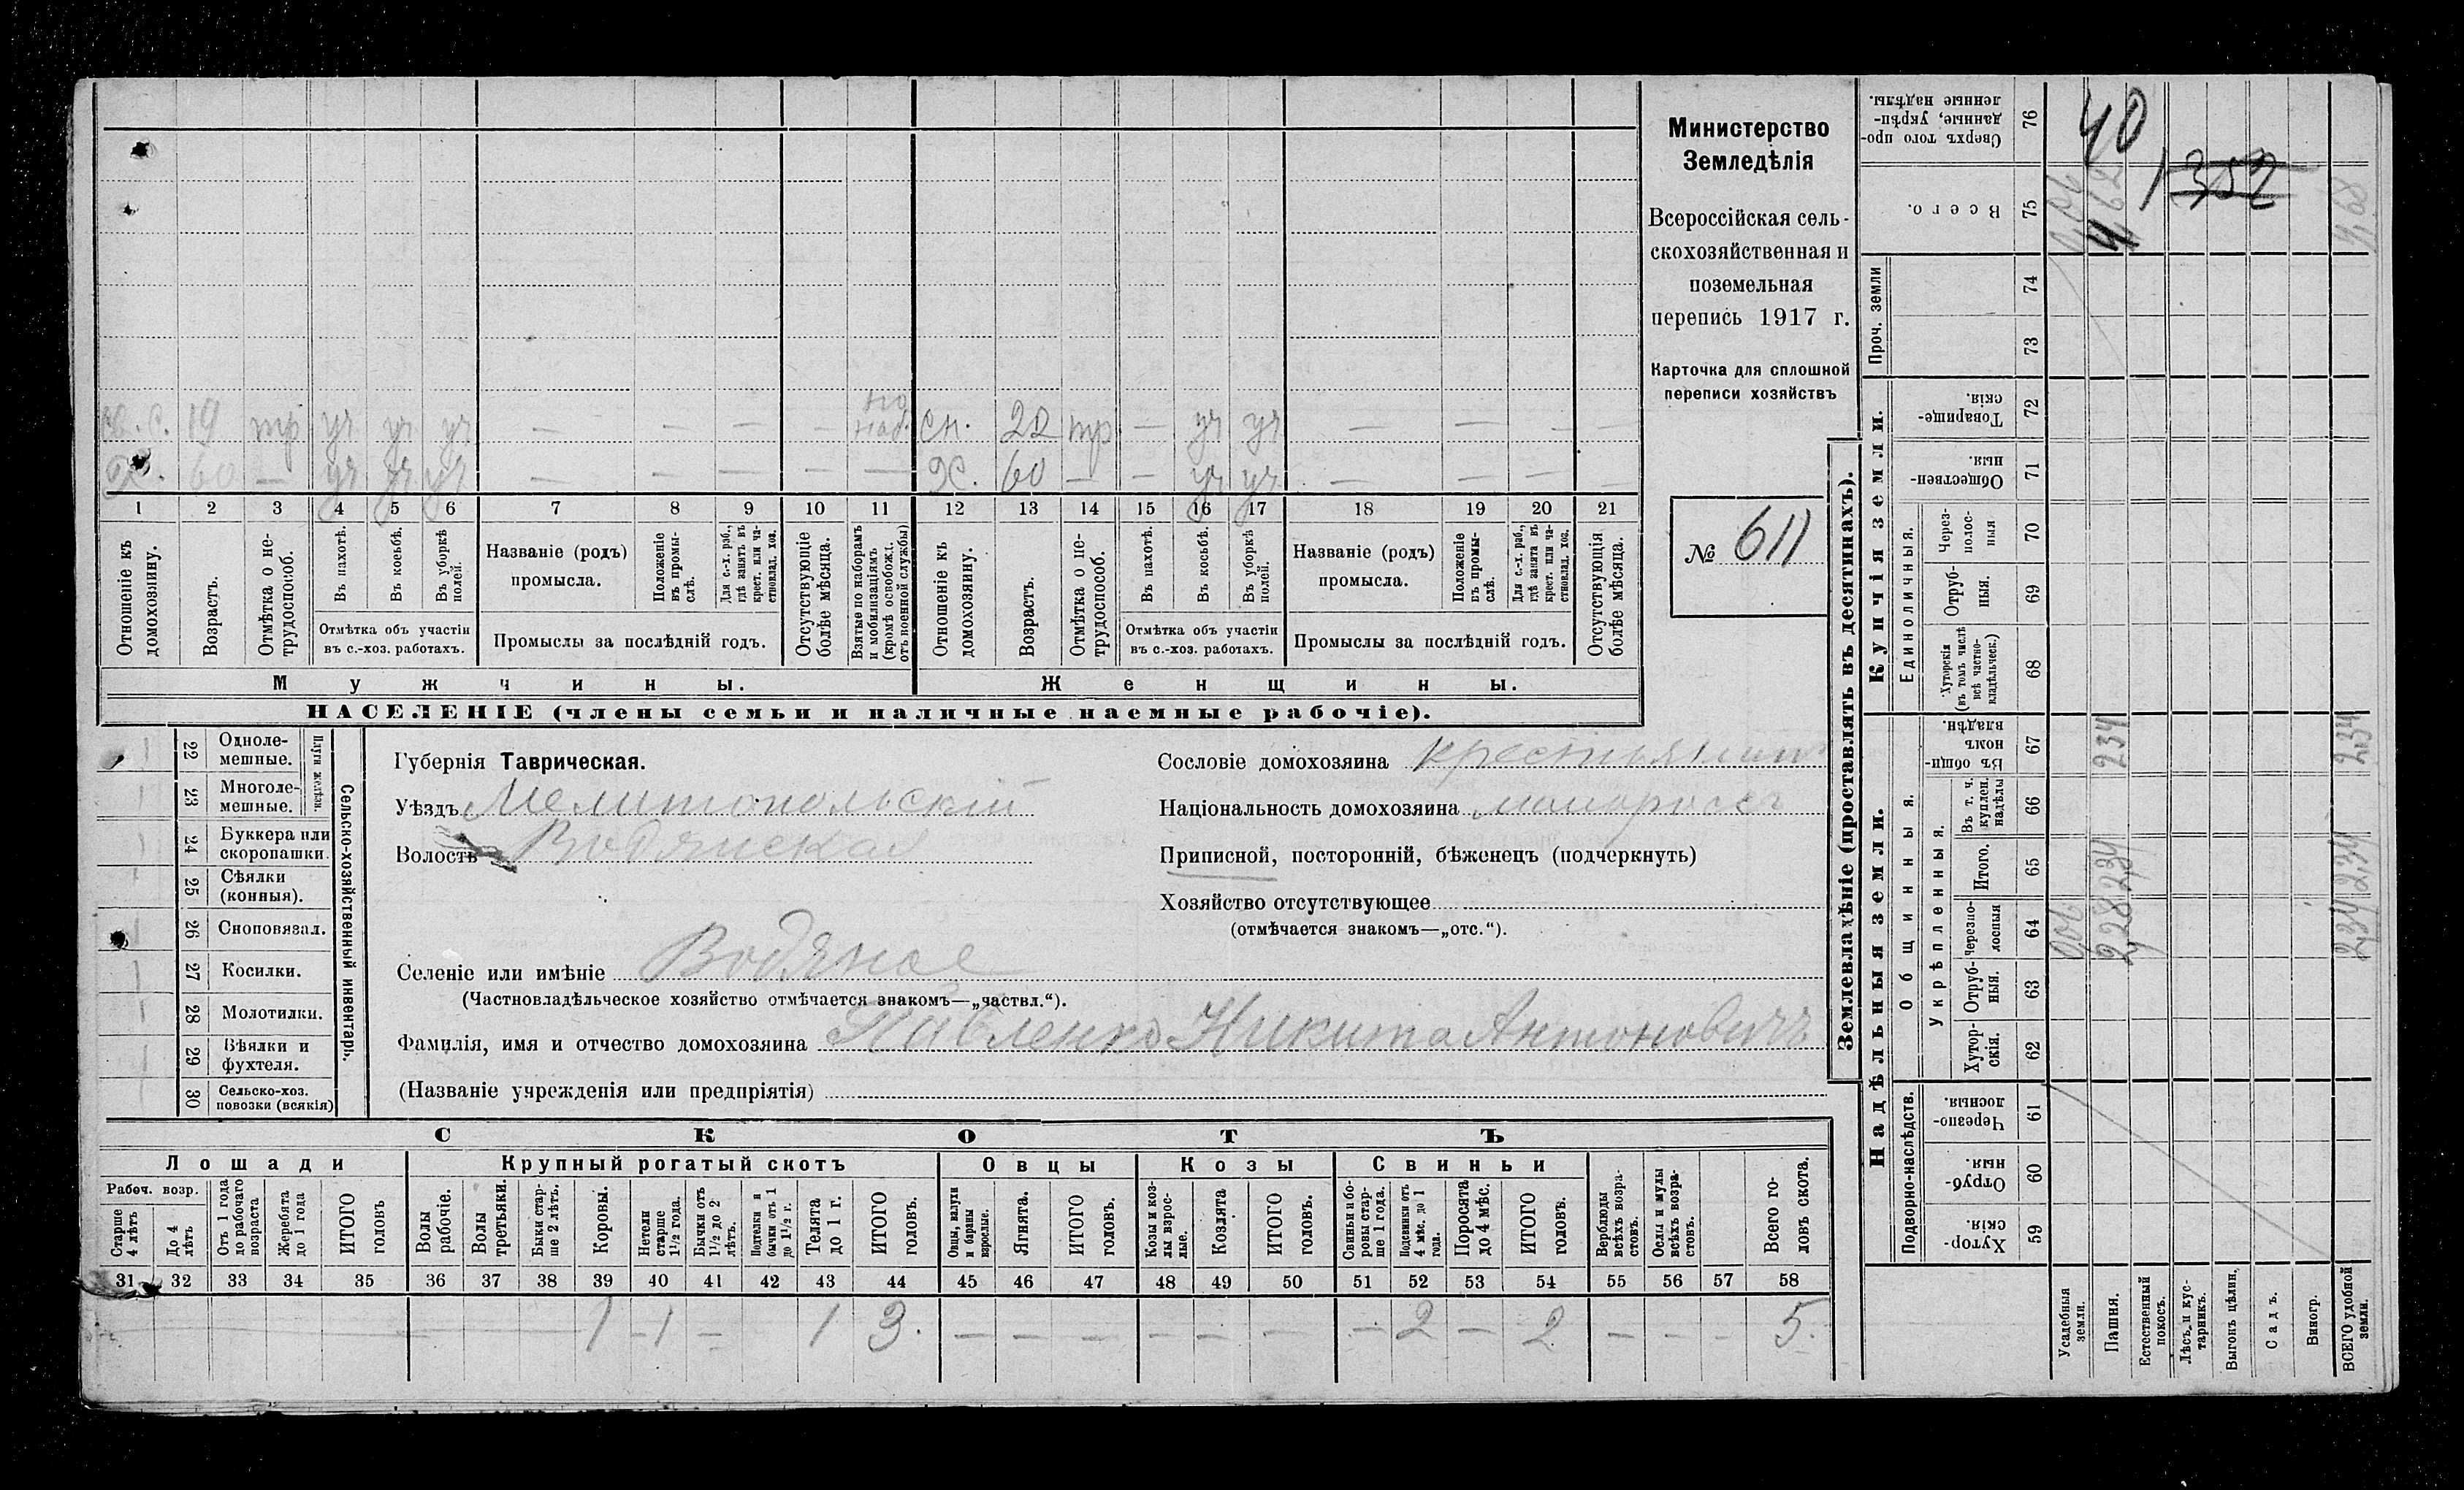 х. 60 — уч уч уч — — — — — Х. 60 — — уч уч — — — —
с. 19 тр уч уч уч — — — — по наб. сн. 22 тр — уч уч — — — —
1 2 3 4 5 6 7 8 9 10 11 12 13 14 15 16 17 18 19 20 21
Отношеніе къ домохозяину.
Возрастъ.
Отмѣтка о не-трудоспособ.
Въ пахотѣ.
Въ косьбѣ.
Въ уборкѣ полей.
Отмѣтка объ участіи
въ с.-хоз. работахъ.
Названіе (родъ)
промысла.
Положеніе въ промы-слѣ.
Для с.-х. раб., гдѣ занятъ въ крест. или ча-стновлад. хоз.
Промыслы за послѣдній годъ.
Отсутствующіе болѣе мѣсяца.
Взятые по наборамъ и мобилизаціямъ (кромѣ освобожд. отъ военной службы)
Отношеніе къ домохозяину.
Возрастъ.
Отмѣтка о не-трудоспособ.
Въ пахотѣ.
Въ косьбѣ.
Въ уборкѣ полей.
Отмѣтка объ участіи
въ с.-хоз. работахъ.
Названіе (родъ)
промысла.
Положеніе въ промы-слѣ.
Для с.-х. раб., гдѣ занята въ крест. или ча-стновлад. хоз.
Промыслы за послѣдній годъ.
Отсутствующія болѣе мѣсяца.
Мужчины.
Женщины.
НАСЕЛЕНІЕ (члены семьи и наличные наемные рабочіе).
Министерство
Земледѣлія
Всероссійская сель-
скохозяйственная и
поземельная
перепись 1917 г.
Карточка для сплошной
переписи хозяйствъ
№ 611
22 Одноле-
мешные.
23 Многоле-
мешные.
Плуги желѣзн.
24 Буккера или
скоропашки.
25 Сѣялки
(конныя).
26 Сноповязал.
27 Косилки.
28 Молотилки.
29 Вѣялки и
фухтеля.
30 Сельско-хоз.
повозки (всякія)
Сельско-хозяйственный инвентарь.
Губернія Таврическая.
Уѣздъ Мелитопольскій
Волость Водянская
Селеніе или имѣніе Водяное
(Частновладѣльческое хозяйство отмѣчается знакомъ—„частвл.“).
Фамилія, имя и отчество домохозяина Павленко Никита Антоновичъ
(Названіе учрежденія или предпріятія)
Сословіе домохозяина крестьянинъ
Національность домохозяина малороссъ
Приписной, посторонній, бѣженецъ (подчеркнуть)
Хозяйство отсутствующее
(отмѣчается знакомъ—„отс.“).
СКОТЪ
Лошади
Крупный рогатый скотъ
Овцы
Козы
Свиньи
Рабоч. возр.
Старше 4 лѣтъ
До 4 лѣтъ
Отъ 1 года до рабочаго возраста
Жеребята до 1 года
ИТОГО головъ
Волы рабочіе.
Волы третьяки.
Быки стар-ше 2 лѣтъ.
Коровы.
Нетели старше 1½ года.
Бычки отъ 1½ до 2 лѣтъ.
Подтелки и бычки отъ 1 до 1½ г.
Телята до 1 г.
ИТОГО головъ.
Овцы, валухи и бараны взрослые.
Ягнята.
ИТОГО головъ.
Козы и коз-лы взрос-лые.
Козлята
ИТОГО головъ.
Свиньи и бо-ровы стар-ше 1 года.
Подсвинки отъ 4 мѣс. до 1 года.
Поросята до 4 мѣс.
ИТОГО головъ.
Верблюды всѣхъ возра-стовъ.
Ослы и мулы всѣхъ возра-стовъ.
Всего го-ловъ скота.
31 32 33 34 35 36 37 38 39 40 41 42 43 44 45 46 47 48 49 50 51 52 53 54 55 56 57 58
1 1 — 1 3. — — — — — — — 2 — 2 — — — 5.
Землевладѣніе (проставлять въ десятинахъ).
Надѣльныя земли.
Купчія земли.
Проч. земли
Подворно-наслѣдств.
Общинныя.
Укрѣпленныя.
Единоличныя.
Сверхъ того про-данные, укрѣп-ленные надѣлы. 76
Всего. 75
74
73
Товарище-скія. 72
Обществен-ныя. 71
Через-полос-ныя 70
Отруб-ныя. 69
Хуторскія (въ томъ числѣ всѣ частно-владѣльческ.) 68
Въ общин-номъ владѣн. 67
Въ т. ч. куплен. надѣлы 66
Итого. 65
Черезпо-лосныя 64
Отруб-ныя. 63
Хутор-скія. 62
Черезпо-лосныя. 61
Отруб-ныя. 60
Хутор-скія. 59
Усадебныя земли.
Пашня.
Естественный покосъ.
Лѣсъ и кус-тарникъ.
Выгонъ цѣлин.
Садъ.
Виногр.
ВСЕГО удобной земли.
40
1352
4,62
4,68
2,34
2,34
2,28
2,34
2,34
2,34